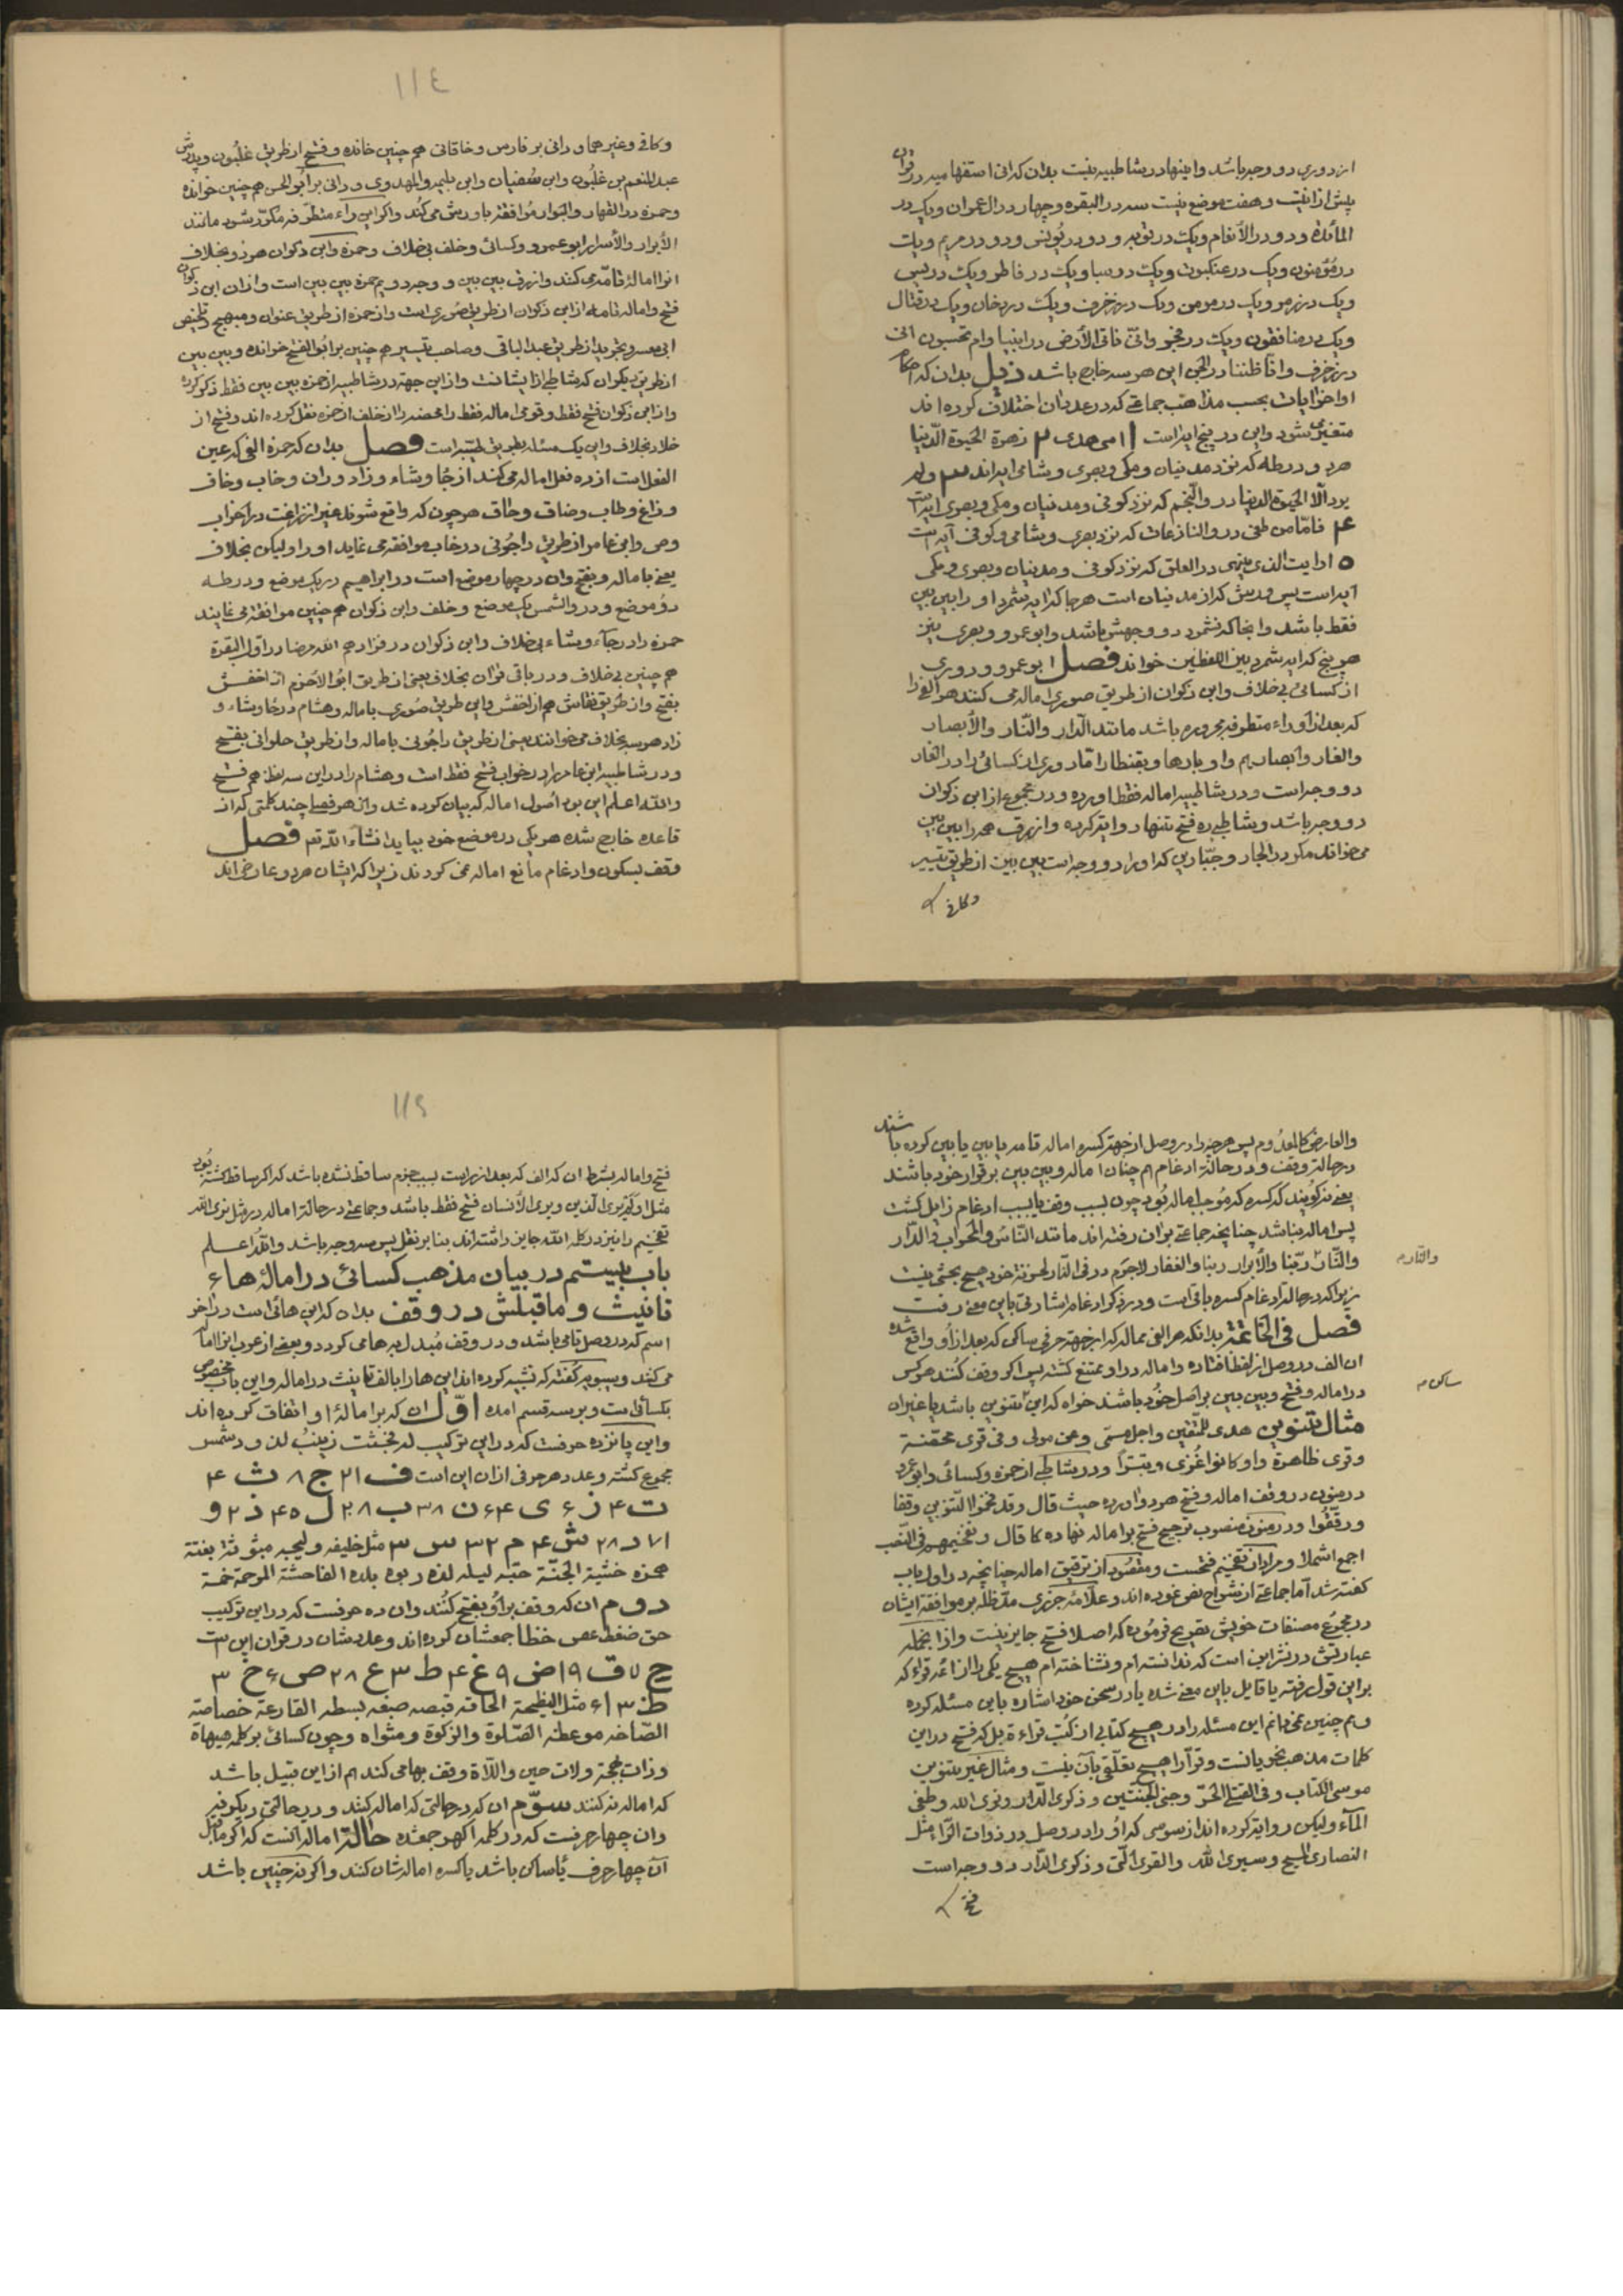 از دوری دو وجه باشد و اینها در شاطبیه نیست بدان که انی استفهامیه در قرآن
بیش از بیست و هفت موضع نیست سه در البقره و چهار در ال عمران و یک در
المائدة و دو در الأنعام و یک در توبه و دو در یونس و دو در مریم و یک
در مؤمنون و یک در عنکبوت و یک در سبا و یک در فاطر و یک در یس
و یک در زمر و یک در مومن و یک در زخرف و یک در دخان و یک در قتال
و یک در منافقون و یک در فجر
در زخرف و انا ظننا در الجن این هر سه خارج باشد ذیل بدان که احکام
اواخر ایات بحسب مذاهب جماعتی که در عد آن اختلاف کرده اند
متغیر می شود و این در پنج ایه است ۱ منی هدی ۲ زهرة الحیوة الدنیا
هر دو در طه که نزد مدنیان و مکی و بصری و شامی ایه اند ۳ ولم
یرد الا الحیوة الدنیا در والنجم که نزد کوفی و مدنیان و مکی و بصری ایه است
۴ فاما من طغی در والنازعات که نزد بصری و شامی و کوفی آیه است
۵ ارایت الذی ینهی در العلق که نزد کوفی و مدنیان و بصری و مکی
آیه است پس ورش که از مدنیان است هر جا که ایه شمرد او را بین بین
فقط باشد و انجا که نشمرد دو وجهش باشد و ابو عمرو و بصری نیز
هر پنج که ایه شمرد بین اللفظین خواند فصل ابو عمرو و دوری
از کسائی بی خلاف و ابن ذکوان از طریق صوری اماله می کنند هر الفی را
که بعد از او راء متطرفه مجروره باشد مانند الدار والنار والأبصار
والغار وابصارهم واوبارها وبقنطار اما دوری از کسائی را در الغار
دو وجه است و در شاطبیه اماله فقط اورده و در مجموع از ابن ذکوان
دو وجه باشد و شاطبی ره فتح تنها روایة کرده و ازرق همه را بین بین
می خواند مگر در الجار و جبارین که او را دو وجه است بین بین از طریق تیسیر
و کافی
۱۱٤
و کافی و غیرهما و دانی بر فارس و خاقانی هم چنین خوانده و فتح از طریق غلبون و پدرش
عبدالمنعم بن غلبون و ابن سفیان و ابن بلیمه والمهدوی و دانی بر ابو الحسن هم چنین خوانده
و حمزه در القهار والبوار موافقة با ورش می کند و اگر این راء متطرفه مکرر شود مانند
الأبرار والأسرار ابو عمرو و کسائی و خلف بی خلاف و حمزه و ابن ذکوان هر دو بخلاف
انرا اماله تامه می کنند و ازرق بین بین و وجه دویم حمزه بین بین است و از ان ابن ذکوان
فتح و اماله تامه از ابن ذکوان از طریق صوری است و از حمزه از طریق عنوان و مبهج و تلخیص
ابی معشر و تجرید از طریق عبد الباقی و صاحب تیسیر هم چنین بر ابو الفتح خوانده و بین بین
از طریق دیگران که شاطبی از ایشانست و از این جهة در شاطبیه از حمزه بین بین فقط ذکر کرده
و از ابن ذکوان فتح فقط و قومی اماله فقط را محضه را از خلف از حمزه نقل کرده اند و فتح از
خلاد بخلاف و این یک مسئله بطریق طیبه است فصل بدان که حمزه الفی که عین
الفعل است از ده فعل اماله می کند از جاء و شاء و زاد و ران و خاب و خاف
و زاغ و طاب و ضاق و حاق هر چون که واقع شوند غیر از زاغت در احزاب
و ص و ابن عامر از طریق داجونی در خاب موافقه می نماید او را و لیکن بخلاف
یعنی باماله و بفتح و ان در چهار موضع است در ابراهیم در یک موضع و در طه
دو موضع و در والشمس یک موضع و خلف و ابن ذکوان هم چنین موافقه می نمایند
حمزه را در جاء و شاء بی خلاف و ابن ذکوان در فزادهم الله مرضا در اول البقرة
هم چنین بی خلاف و در باقی قرآن بخلاف یعنی از طریق ابو الاخرم از اخفش
بفتح و از طریق نقاش هم از اخفش و این طریق صوری باماله و هشام در جاء و شاء و
زاد هر سه بخلاف می خوانند یعنی از طریق داجونی باماله و از طریق حلوانی بفتح
و در شاطبیه ابن عامر را در خواب فتح فقط است و هشام را در این سه لفظ هم فتح
والله اعلم این بود اصول اماله که بیان کرده شد و از هر فصلی چند کلمتی که از
قاعده خارج شده هر یکی در موضع خود بیاید انشاء الله تع فصل
وقف بسکون و ادغام مانع اماله نمی گردند زیرا که ایشان هر دو عارض اند
والعارض کالمعدوم پس هر چه را در وصل از جهة کسره اماله تامه یا بین بین کرده باشند
در حالة وقف و در حالة ادغام هم چنان اماله و بین بین بر قرار خود باشند
یعنی نگویند که کسره که موجب اماله بود چون بسبب وقف یا بسبب ادغام زایل گشت
پس اماله نباشد چنانچه جماعتی بران رفته اند مانند الناس والمحراب والدار
والنار ربنا والأبرار ربنا والغفار لاجرم در فی النار لخزنة خود هیچ بحثی نیست
والنار م
زیرا که در حالة ادغام کسره باقی است و در ذکر ادغام اشارتی باین معنی رفت
فصل فی الخاتمة بدانکه هر الفی ممال که از جهة حرفی ساکن که بعد از او واقع شده
ان الف در وصل از لفظ افتاده و اماله در او ممتنع گشته پس اگر وقف کنند هر کس
ساکن م
در اماله و فتح و بین بین بر اصل خود باشند خواه که این تنوین باشد یا غیر ان
مثال تنوین هدی للمتقین واجل مسمی وعن مولی وفی قری محصنة
وقری ظاهرة او کانوا غزی و تترا و در شاطبی از حمزه و کسائی و ابو عمرو
در منون در وقف اماله و فتح هر دو اورده حیث قال وقد فخموا التنوین وقفا
ورققوا و در منون منصوب ترجیح فتح بر اماله نهاده کما قال وتفخیمهم فی النصب
اجمع اشملا و مراد از تفخیم فتحست و مقصود از ترقیق اماله چنانچه در اول باب
گفته شد اما جماعتی از شراح نص نموده اند و علامه جزری مد ظله بر موافقة ایشان
در مجموع مصنفات خویش تصریح فرموده که اصلا فتح جایز نیست و از انجمله
عبارتش در نشر این است که ندانسته ام و نشناخته ام هیچ یکی را از ائمه قراء که
بر این قول رفته یا قایل باین معنی شده یا در سخن خود اشاره باین مسئله کرده
و هم چنین نمی دانم این مسئله را در هیچ کتابی از کتب قراءة بل که فتح در این
کلمات مذهب نحویانست و قرآ را هیچ تعلقی بآن نیست و مثال غیر تنوین
موسی الکتاب وفی القتلی الحر وجنی الجنتین وذکری الدار ونری الله وطغی
المآء و لیکن روایة کرده اند از سوسی که او را در وصل در ذوات الراء مثل
النصاری المسیح وسیری الله والقری التی وذکری الدار دو وجه است
فتح
۱۱۵
فتح و اماله بشرط ان که الف که بعد از راست بسبب جزم ساقط نشده باشد که اگر ساقط گشته بود
مثل اولم یر الذین و یر الأنسان فتح فقط باشد و جماعتی در حالة اماله در مثل نری الله
تفخیم را نیز در کلمه الله جایز داشته اند بنا بر نقل پس سه وجه باشد والله اعلم
باب بیستم در بیان مذهب کسائی در امالهٔ هاء
تانیث و ماقبلش در وقف بدان که این هائی است در آخر
اسم که در وصل تا می باشد و در وقف مبدل به ها می گردد و بعضی از عرب انرا اماله
می کنند و سیبویه گفته که تشبیه کرده اند این ها را بالف تانیث در اماله و این باب مخصوص
بکسائی است و بر سه قسم امده اول ان که بر امالهٔ او اتفاق کرده اند
و این پانزده حرفست که در این ترکیب فجثت زینب لذود شمس
مجموع گشته و عدد هر حرفی از ان این است ف ۲۱ ج ۸ ث ۴
ت ۴ ز ۶ ی ۶۴ ن ۳۸ ب ۲۸ ل ۴۵ ذ ۲ و
۱۷ د ۲۸ ش ۴ م ۳۲ س ۳ مثل خلیفه ولیجه مبثوثة بغتة
همزه خشیة الجنة حبه لیله لذه ربوه بلده الفاحشة المرحمة خمسة
دوم ان که وقف بر او بفتح کنند و ان ده حرفست که در این ترکیب
حق ضغط عص خظا جمعشان کرده اند و عددشان در قران این است
ح ۷ ق ۱۹ ض ۹ غ ۴ ط ۳ ع ۲۸ ص ۶ خ ۳
ظ ۳ ا ۶ مثل النطیحة الحاقه قبضه صبغه بسطه القارعة خصاصة
الصاخه موعظة الصلوة والزکوة ومشواه و چون کسائی بر کلمه هیهاة
و ذات بهجة و لات حین و اللاة وقف بها می کند هم از این قبیل باشد
که اماله نه کنند سوم ان که در حالتی که اماله کنند و در حالتی دیگر نه
و ان چهار حرفست که در کلمه اکهر جمع شده حالة اماله انست که اگر ماقبل
آن چهار حرف یا ساکن باشد یا کسره اماله شان کنند و اگر نه چنین باشد